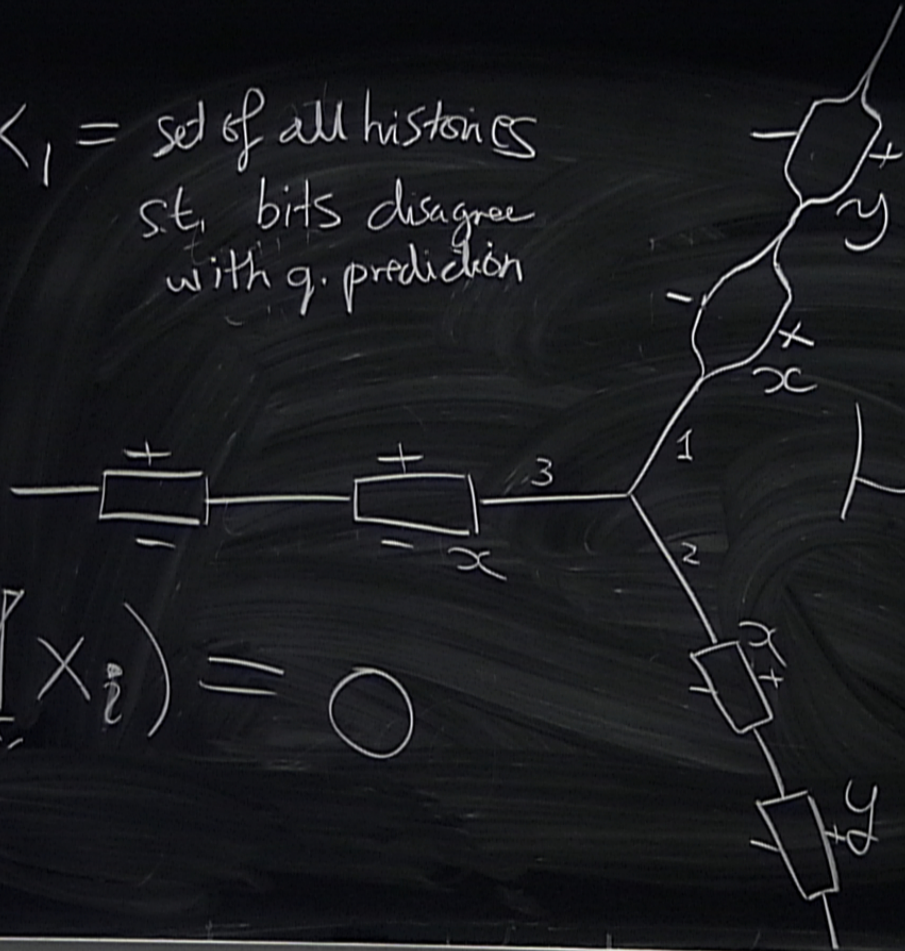 X₁ = set of all histories
s.t. bits disagree
with q. prediction
- +
y
- +
x
1
+ + 3
- - x
2
x
- +
Xᵢ) = 0
y
- +